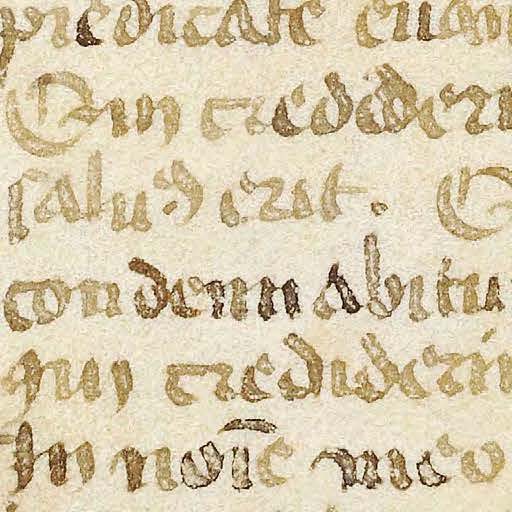 predicate euan
Qui credideri
saluꝰ erit. Q
condennabitu
qui crediderin
In noīe meo